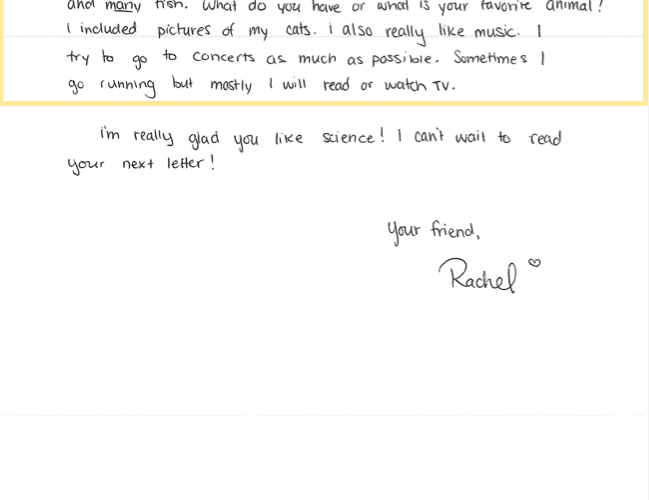 and many fish. What do you have or what is your favorite animal?
I included pictures of my cats. i also really like music. I
try to go to concerts as much as possible. Sometimes I
go running but mostly I will read or watch TV.
i'm really glad you like science! I can't wait to read
your next letter!
Your friend,
Rachel ♡